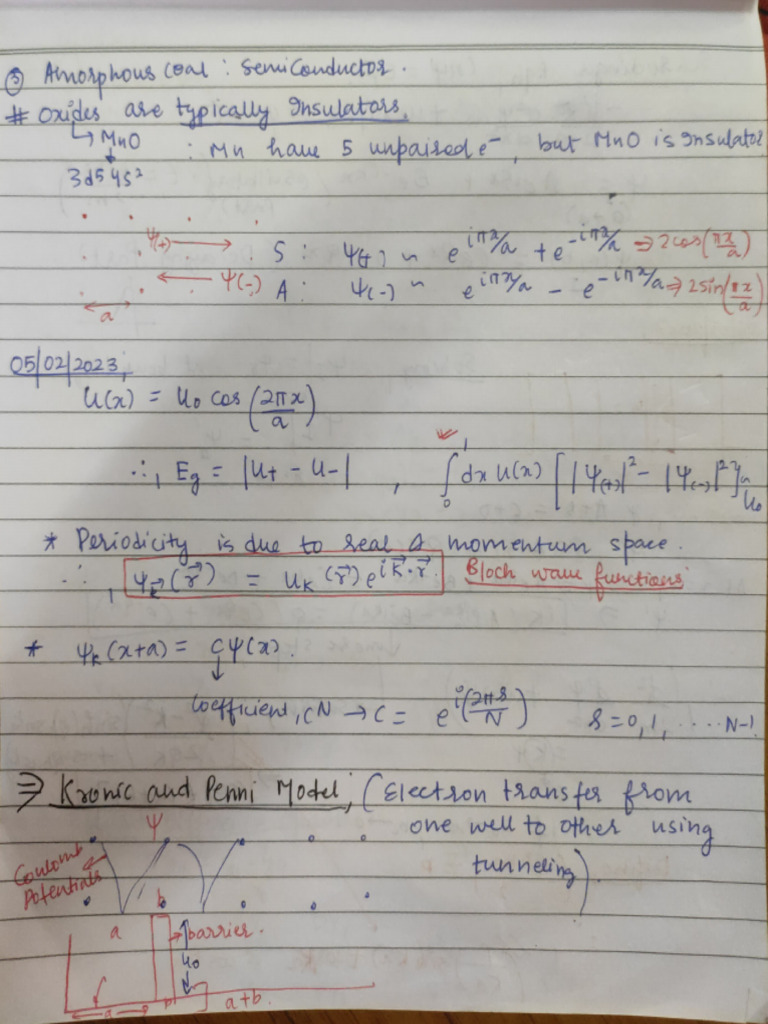 ③ Amorphous coal : SemiConductor.
# Oxides are typically Insulators.
↳ MnO : Mn have 5 unpaired e⁻, but MnO is Insulator
3d5 4s²
ψ(+) → S : ψ(+) ~ e^{iπx/a} + e^{-iπx/a} ⇒ 2cos(πx/a)
← ψ(-) A : ψ(-) ~ e^{iπx/a} - e^{-iπx/a} ⇒ 2sin(πx/a)
a
05/02/2023,
U(x) = U₀ cos (2πx/a)
∴, Eg = |U+ - U-| , ∫₀¹ dx u(x) [|ψ(+)|² - |ψ(-)|²]
U₀
* Periodicity is due to real & momentum space.
∴, ψ_k⃗(r⃗) = u_K(r⃗) e^{ik⃗·r⃗} Bloch wave functions
* ψ_k(x+a) = Cψ(x).
↓
Coefficient, C^N → C = e^{i(2πs/N)} s = 0, 1, ..... N-1
⇒ Kronic and Penni Model, (Electron transfer from
one well to other using
tunneling).
ψ
Coulomb
Potentials
b
a → barrier.
u₀
a b a+b.